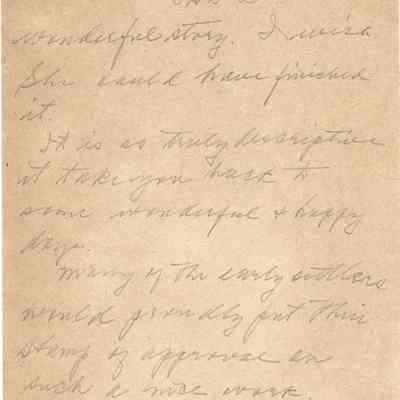 wonderful story. I wish
she could have finished
it.
It is so truly descriptive
it take you back to
some wonderful & happy
days.
Many of the early settlers
would proudly put their
stamp of approval on
such a nice work.